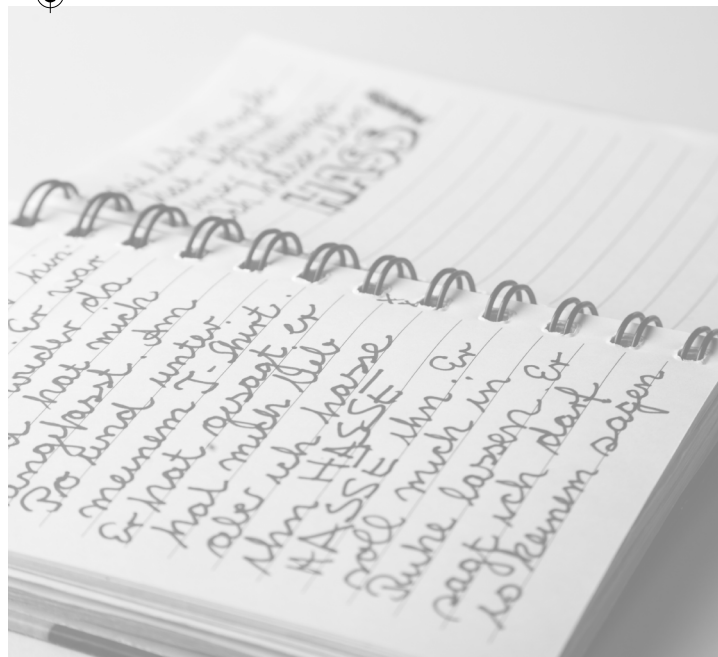 HASS!
hin.
Er war
wieder da
hat mich
angefasst. Am
Po und unter
meinem T-Shirt.
Er hat gesagt er
hat mich lieb
aber ich hasse
ihn HASSE
HASSE ihn. Er
soll mich in
Ruhe lassen. Er
sagt ich darf
es keinem sagen